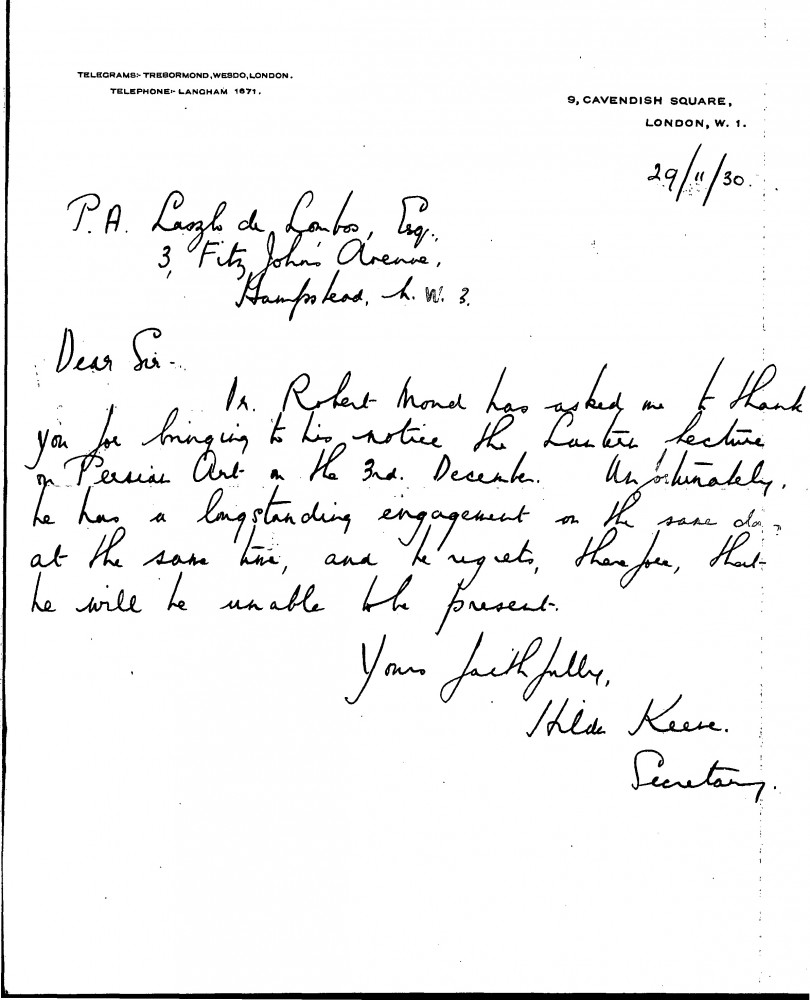 TELEGRAMS:- TREBORMOND, WESDO, LONDON.
TELEPHONE:- LANGHAM 1671.
9, CAVENDISH SQUARE,
LONDON, W. 1.
29/11/30.
P. A. Laszlo de Lombos, Esq.,
3, Fitz John's Avenue,
Hampstead, N. W. 3.
Dear Sir -
Dr. Robert Mond has asked me to thank
you for bringing to his notice the Lantern Lecture
on Persian Art on the 3rd. December. Unfortunately,
he has a longstanding engagement on the same day
at the same time, and he regrets, therefore, that
he will be unable to be present.
Yours faithfully,
Hilda Keese.
Secretary.